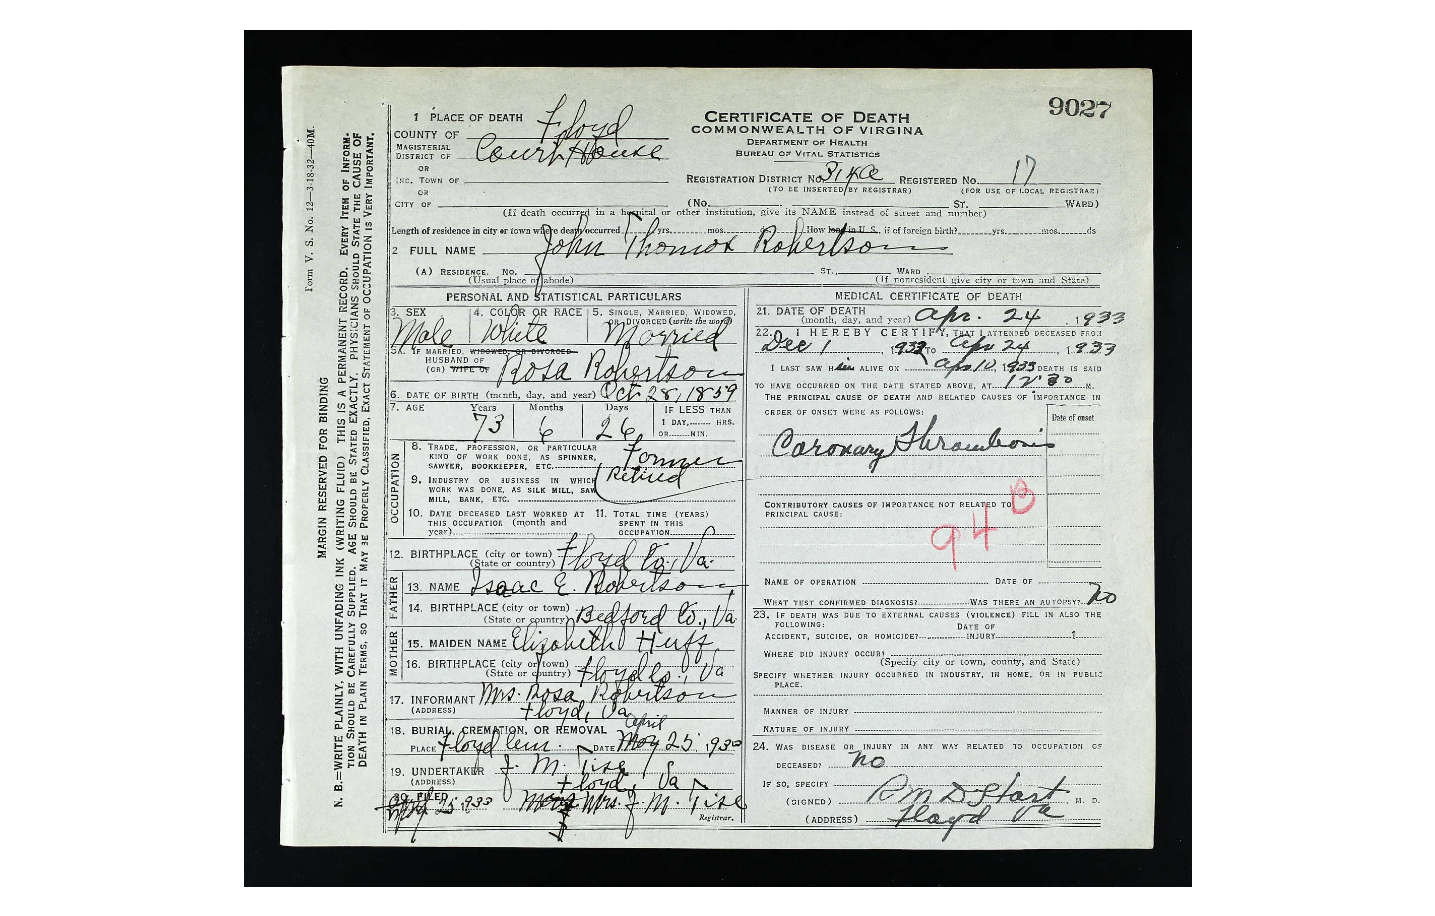 9027
1 PLACE OF DEATH
COUNTY OF Floyd
MAGISTERIAL DISTRICT OF Court House
OR
INC. TOWN OF
OR
CITY OF
CERTIFICATE OF DEATH
COMMONWEALTH OF VIRGINIA
DEPARTMENT OF HEALTH
BUREAU OF VITAL STATISTICS
REGISTRATION DISTRICT No. REGISTERED No. 17
(TO BE INSERTED BY REGISTRAR) (FOR USE OF LOCAL REGISTRAR)
(No. ST. WARD)
(If death occurred in a hospital or other institution, give its NAME instead of street and number)
Length of residence in city or town where death occurred yrs. mos. ds. How long in U. S., if of foreign birth? yrs. mos. ds
2 FULL NAME John Thomas Robertson
(A) RESIDENCE. No. ST., WARD
(Usual place of abode) (If nonresident give city or town and State)
PERSONAL AND STATISTICAL PARTICULARS
3. SEX 4. COLOR OR RACE 5. SINGLE, MARRIED, WIDOWED, OR DIVORCED (write the word)
Male White Married
5A. IF MARRIED, WIDOWED, OR DIVORCED
HUSBAND OF
(OR) WIFE OF Rosa Robertson
6. DATE OF BIRTH (month, day, and year) Oct 28, 1859
7. AGE Years Months Days IF LESS THAN
1 DAY, HRS.
OR MIN.
73 6 26
OCCUPATION
8. TRADE, PROFESSION, OR PARTICULAR
KIND OF WORK DONE, AS SPINNER,
SAWYER, BOOKKEEPER, ETC. Farmer
Retired
9. INDUSTRY OR BUSINESS IN WHICH
WORK WAS DONE, AS SILK MILL, SAW
MILL, BANK, ETC.
10. DATE DECEASED LAST WORKED AT
THIS OCCUPATION (month and
year)
11. TOTAL TIME (YEARS)
SPENT IN THIS
OCCUPATION
12. BIRTHPLACE (city or town)
(State or country) Floyd Co., Va.
FATHER
13. NAME Isaac E. Robertson
14. BIRTHPLACE (city or town)
(State or country) Bedford Co., Va
MOTHER
15. MAIDEN NAME Elizabeth Huff
16. BIRTHPLACE (city or town)
(State or country) Floyd Co., Va
17. INFORMANT Mrs. Rosa Robertson
(ADDRESS) Floyd, Va
18. BURIAL, CREMATION, OR REMOVAL April
PLACE Floyd Cem. DATE May 25, 1933
19. UNDERTAKER J. M. Tise
(ADDRESS) Floyd, Va
20. FILED 25, 1933 Mrs. J. M. Tise
Registrar.
MEDICAL CERTIFICATE OF DEATH
21. DATE OF DEATH
(month, day, and year) Apr. 24, 1933
22. I HEREBY CERTIFY, THAT I ATTENDED DECEASED FROM
Dec 1, 1932 TO Apr 24, 1933
I LAST SAW HIM ALIVE ON Apr 10, 1933 DEATH IS SAID
TO HAVE OCCURRED ON THE DATE STATED ABOVE, AT 12:30 M.
THE PRINCIPAL CAUSE OF DEATH AND RELATED CAUSES OF IMPORTANCE IN
ORDER OF ONSET WERE AS FOLLOWS: Date of onset
Coronary Thrombosis
CONTRIBUTORY CAUSES OF IMPORTANCE NOT RELATED TO
PRINCIPAL CAUSE:
94 B
NAME OF OPERATION DATE OF
WHAT TEST CONFIRMED DIAGNOSIS? WAS THERE AN AUTOPSY? No
23. IF DEATH WAS DUE TO EXTERNAL CAUSES (VIOLENCE) FILL IN ALSO THE
FOLLOWING:
ACCIDENT, SUICIDE, OR HOMICIDE? DATE OF INJURY 1
WHERE DID INJURY OCCUR?
(Specify city or town, county, and State)
SPECIFY WHETHER INJURY OCCURRED IN INDUSTRY, IN HOME, OR IN PUBLIC
PLACE.
MANNER OF INJURY
NATURE OF INJURY
24. WAS DISEASE OR INJURY IN ANY WAY RELATED TO OCCUPATION OF
DECEASED? No
IF SO, SPECIFY
(SIGNED) M. D.
(ADDRESS) Floyd Va
Form V. S. No. 12—3-18-32—40M.
MARGIN RESERVED FOR BINDING
N. B.—WRITE PLAINLY, WITH UNFADING INK (WRITING FLUID) THIS IS A PERMANENT RECORD. EVERY ITEM OF INFORMA-
TION SHOULD BE CAREFULLY SUPPLIED. AGE SHOULD BE STATED EXACTLY. PHYSICIANS SHOULD STATE THE CAUSE OF
DEATH IN PLAIN TERMS, SO THAT IT MAY BE PROPERLY CLASSIFIED. EXACT STATEMENT OF OCCUPATION IS VERY IMPORTANT.